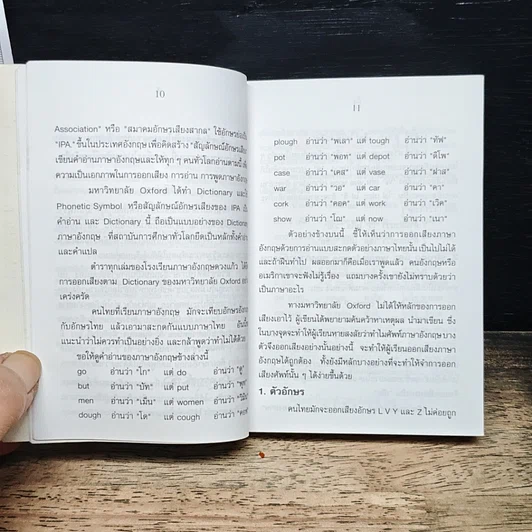 10
Association" หรือ "สมาคมอักษรเสียงสากล" ใช้อักษรย่อเป็น
"IPA." ขึ้นในประเทศอังกฤษ เพื่อคิดสร้าง "สัญลักษณ์อักษรเสียง
เขียนคำอ่านภาษาอังกฤษและให้ทุก ๆ คนทั่วโลกอ่านตามนี้
ความเป็นเอกภาพในการออกเสียง การอ่าน การพูดภาษาอังกฤษ
มหาวิทยาลัย Oxford ได้ทำ Dictionary และใช้
Phonetic Symbol หรือสัญลักษณ์อักษรเสียงของ IPA เป็น
คำอ่าน และ Dictionary นี้ ถือเป็นแบบอย่างของ Dictionary
ภาษาอังกฤษ ที่สถาบันการศึกษาทั่วโลกยึดเป็นหลักทั้งคำอ่าน
และคำแปล
ตำราทุกเล่มของโรงเรียนภาษาอังกฤษดวงแก้ว ได้
การออกเสียงตาม Dictionary ของมหาวิทยาลัย Oxford อย่าง
เคร่งครัด
คนไทยที่เรียนภาษาอังกฤษ มักจะเทียบอักษรอังกฤษ
กับอักษรไทย แล้วเอามาสะกดกันแบบภาษาไทย อันนี้
แนะนำว่าไม่ควรทำอย่างยิ่ง และกล้าพูดว่าทำไม่ได้ด้วย
ขอให้ดูคำอ่านของภาษาอังกฤษข้างล่างนี้
go อ่านว่า "โก" แต่ do อ่านว่า "ดู"
but อ่านว่า "บัท" แต่ put อ่านว่า "พุท"
men อ่านว่า "เม็น" แต่ women อ่านว่า
dough อ่านว่า "โด" แต่ cough อ่านว่า
11
plough อ่านว่า "พเลา" แต่ tough อ่านว่า "ทัฟ"
pot อ่านว่า "พอท" แต่ depot อ่านว่า "ดีโพ"
case อ่านว่า "เคส" แต่ vase อ่านว่า "ฝาส"
war อ่านว่า "วอ" แต่ car อ่านว่า "คา"
cork อ่านว่า "คอค" แต่ work อ่านว่า "เวิค"
show อ่านว่า "โฌ" แต่ now อ่านว่า "เนา"
ตัวอย่างข้างบนนี้ ชี้ให้เห็นว่าการออกเสียงภาษา
อังกฤษด้วยการอ่านแบบสะกดตัวอย่างภาษาไทยนั้น เป็นไปไม่ได้
และถ้าฝืนทำไป ผลออกมาก็คือเมื่อเราพูดแล้ว คนอังกฤษหรือ
อเมริกาเขาจะฟังไม่รู้เรื่อง แถมบางครั้งเขายังไม่ทราบด้วยว่า
เป็นภาษาอะไร
ทางมหาวิทยาลัย Oxford ไม่ได้ให้หลักของการออก
เสียงเอาไว้ ผู้เขียนได้พยายามค้นคว้าหาเหตุผล นำมาเขียน ซึ่ง
ในบางจุดจะทำให้ผู้เรียนหายสงสัยว่าทำไมศัพท์ภาษาอังกฤษบาง
ตัวจึงออกเสียงอย่างนั้นอย่างนี้ จะทำให้ผู้เรียนออกเสียงภาษา
อังกฤษได้ถูกต้อง ทั้งยังมีหลักบางอย่างที่จะทำให้จำการออก
เสียงศัพท์นั้น ๆ ได้ง่ายขึ้นด้วย
1. ตัวอักษร
คนไทยมักจะออกเสียงอักษร L V Y และ Z ไม่ค่อยถูก